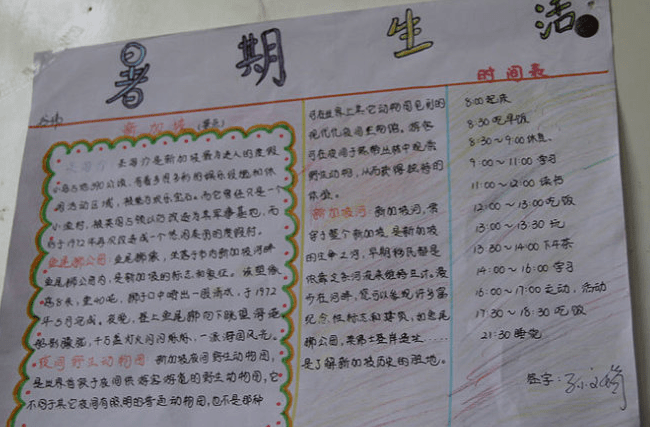 暑期生活
新加坡(景点)
圣淘沙是新加坡最为迷人的度假
小岛占地390公顷,有着多姿多彩的娱乐设施和休
闲活动区域,被誉为欢乐宝石。而它曾经只是一个
小渔村,被英国占领以后改造为军事基地,而
后于1972年再次改造成一个悠闲美丽的度假村。
鱼尾狮公园 鱼尾狮像,坐落于市内新加坡河畔
鱼尾狮公园内,是新加坡的标志和象征。该塑像
高8米,重40吨,狮子口中喷出一股清水,于1972
年5月完成。夜晚,登上鱼尾狮的下眺望海港
船影骚骚,千万盏灯火闪闪烁烁,一派海国风光。
夜间野生动物园 新加坡夜间野生动物园,
是世界首家于夜间供游客游览的野生动物园,它
不同于其它夜间有照明的普通动物园,也不是那种
可在世界上其它动物园见到的
现代化夜间生物馆。游客
可在夜间于热带丛林中观赏
野生动物,从而获得独特的
体验。
新加坡河 新加坡河,常
穿了整个新加坡,是新加坡
的生命之河,早期移民都是
依靠这条河流来维持生计。漫
步在河畔,您可以参观许多富
纪念性标志和建筑,如鱼尾
狮公园,莱佛士登岸遗址……
是了解新加坡历史的胜地。
时间表
8:00 起床
8:30 吃早饭
8:30~9:00 休息
9:00~11:00 学习
11:00~12:00 读书
12:00~13:00 吃饭
13:00~13:30 玩
13:30~14:00 下午茶
14:00~16:00 学习
16:00~17:00 运动,活动
17:30~18:30 吃饭
21:30 睡觉
签字: